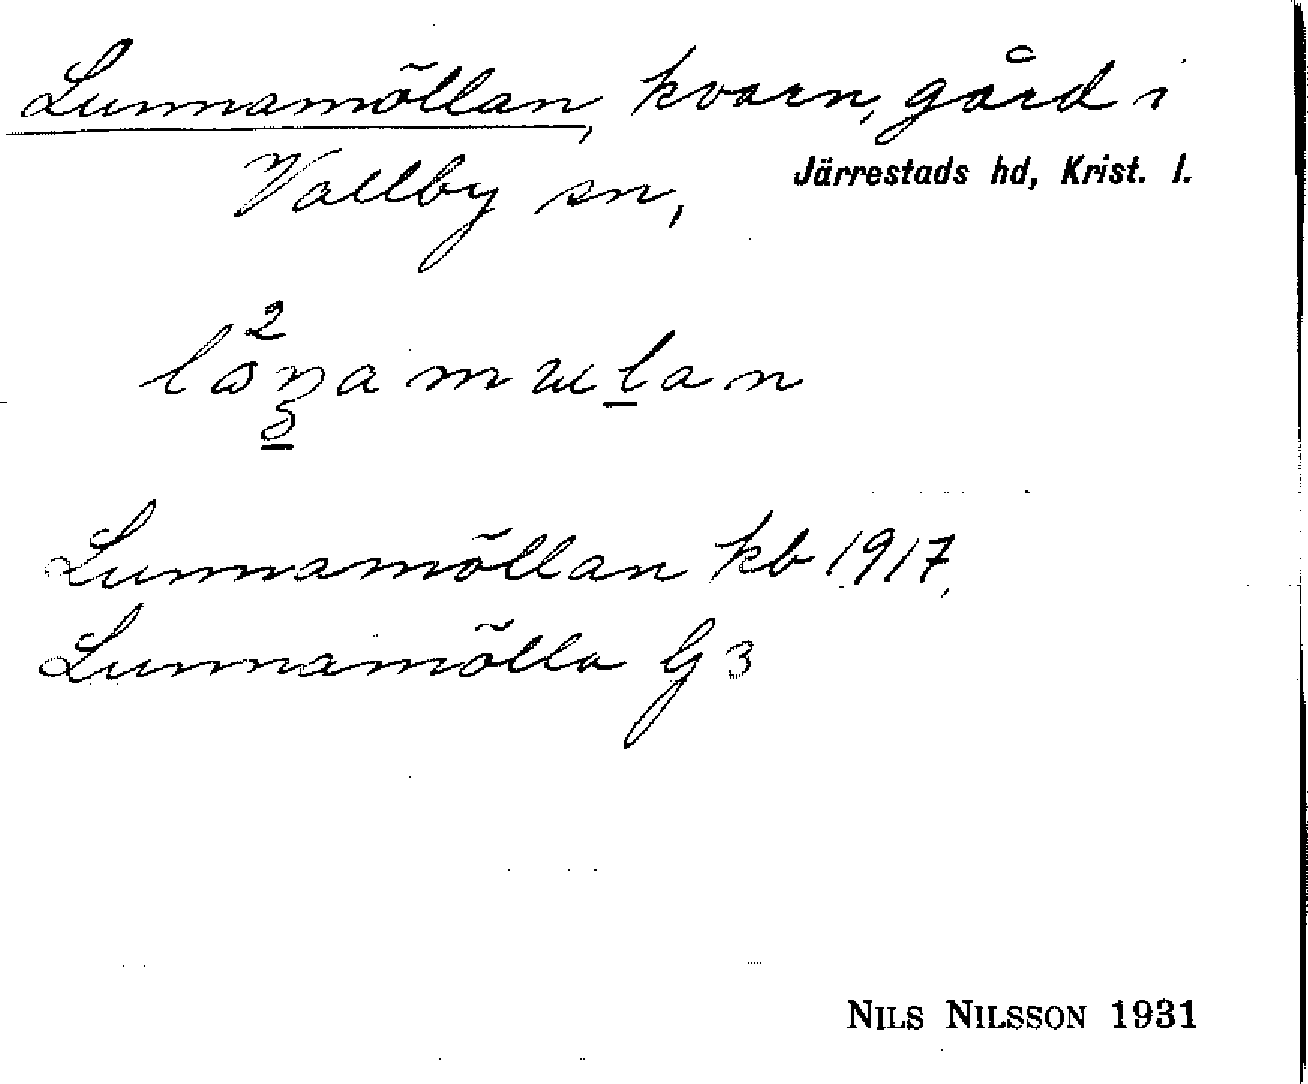 Lunnamöllan, kvarn, gård i
Vallby sn, Järrestads hd, Krist. l.
Lunnamöllan kb 1917,
Lunnamölla G 3
NILS NILSSON 1931